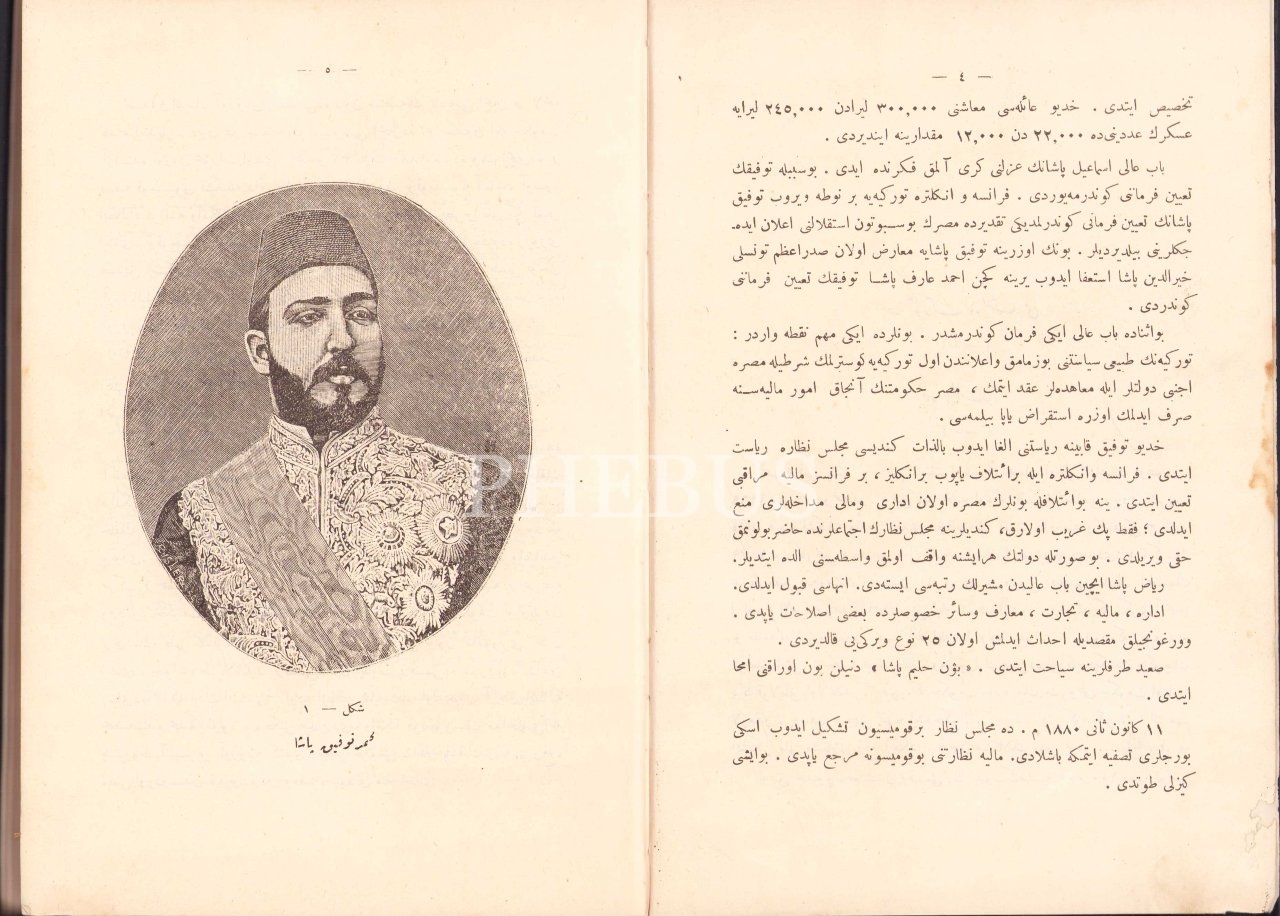 — ٤ —
تخصیص ایتدی . خدیو عائله‌سی معاشنی ٣٠٠,٠٠٠ لیرادن ٢٤٥,٠٠٠ لیرایه
عسكرك عددینی‌ده ٢٢,٠٠٠ دن ١٢,٠٠٠ مقدارینه ایندیردی .
باب عالی اسماعیل پاشانك عزلنی كری آلمق فكرنده ایدی . بوسببله توفیقك
تعیین فرماننی كوندرمه‌یوردی . فرانسه و انكلتره توركیه‌یه بر نوطه ویروب توفیق
پاشانك تعیین فرمانی كوندرلمدیكی تقدیرده مصرك بوسبوتون استقلالنی اعلان ایده‌ـ
جكلرینی بیلدیردیلر . بونك اوزرینه توفیق پاشایه معارض اولان صدراعظم تونسلی
خیرالدین پاشا استعفا ایدوب یرینه كچن احمد عارف پاشا توفیقك تعیین فرماننی
كوندردی .
بواثناده باب عالی ایكی فرمان كوندرمشدر . بونلرده ایكی مهم نقطه واردر :
توركیه‌نك طبیعی سیاستنی بوزمامق واعلانندن اول توركیه‌یه كوسترلمك شرطیله مصره
اجنبی دولتلر ایله معاهده‌لر عقد ایتمك ، مصر حكومتنك آنجاق امور مالیه‌سنه
صرف ایدلمك اوزره استقراض یاپا بیلمه‌سی .
خدیو توفیق قابینه ریاستنی الغا ایدوب بالذات كندیسی مجلس نظاره ریاست
ایتدی . فرانسه وانكلتره ایله برائتلاف یاپوب برانكلیز ، بر فرانسز مالیه مراقبی
تعیین ایتدی . ینه بوائتلافله بونلرك مصره اولان اداری ومالی مداخله‌لری منع
ایدلدی ؛ فقط پك غریب اولارق، كندیلرینه مجلس نظارك اجتماعلرنده حاضر بولونمق
حقی ویریلدی . بوصورتله دولتك هرایشنه واقف اولمق واسطه‌سنی الده ایتدیلر.
ریاض پاشا ایچین باب عالیدن مشیرلك رتبه‌سی ایسته‌دی. انهاسی قبول ایدلدی.
اداره ، مالیه ، تجارت ، معارف وسائر خصوصلرده بعضی اصلاحات یاپدی .
وورغونجیلق مقصدیله احداث ایدلمش اولان ٢٥ نوع ویركی‌یی قالدیردی .
صعید طرفلرینه سیاحت ایتدی . « بؤن حلیم پاشا » دنیلن بون اوراقنی امحا
ایتدی .
١١ كانون ثانی ١٨٨٠ م . ده مجلس نظار برقومیسیون تشكیل ایدوب اسكی
بورجلری تصفیه ایتمكه باشلادی. مالیه نظارتنی بوقومیسونه مرجع یاپدی . بوایشی
كیزلی طوتدی .
— ٥ —
شكل — ١
محمد توفیق پاشا
PHEBUS